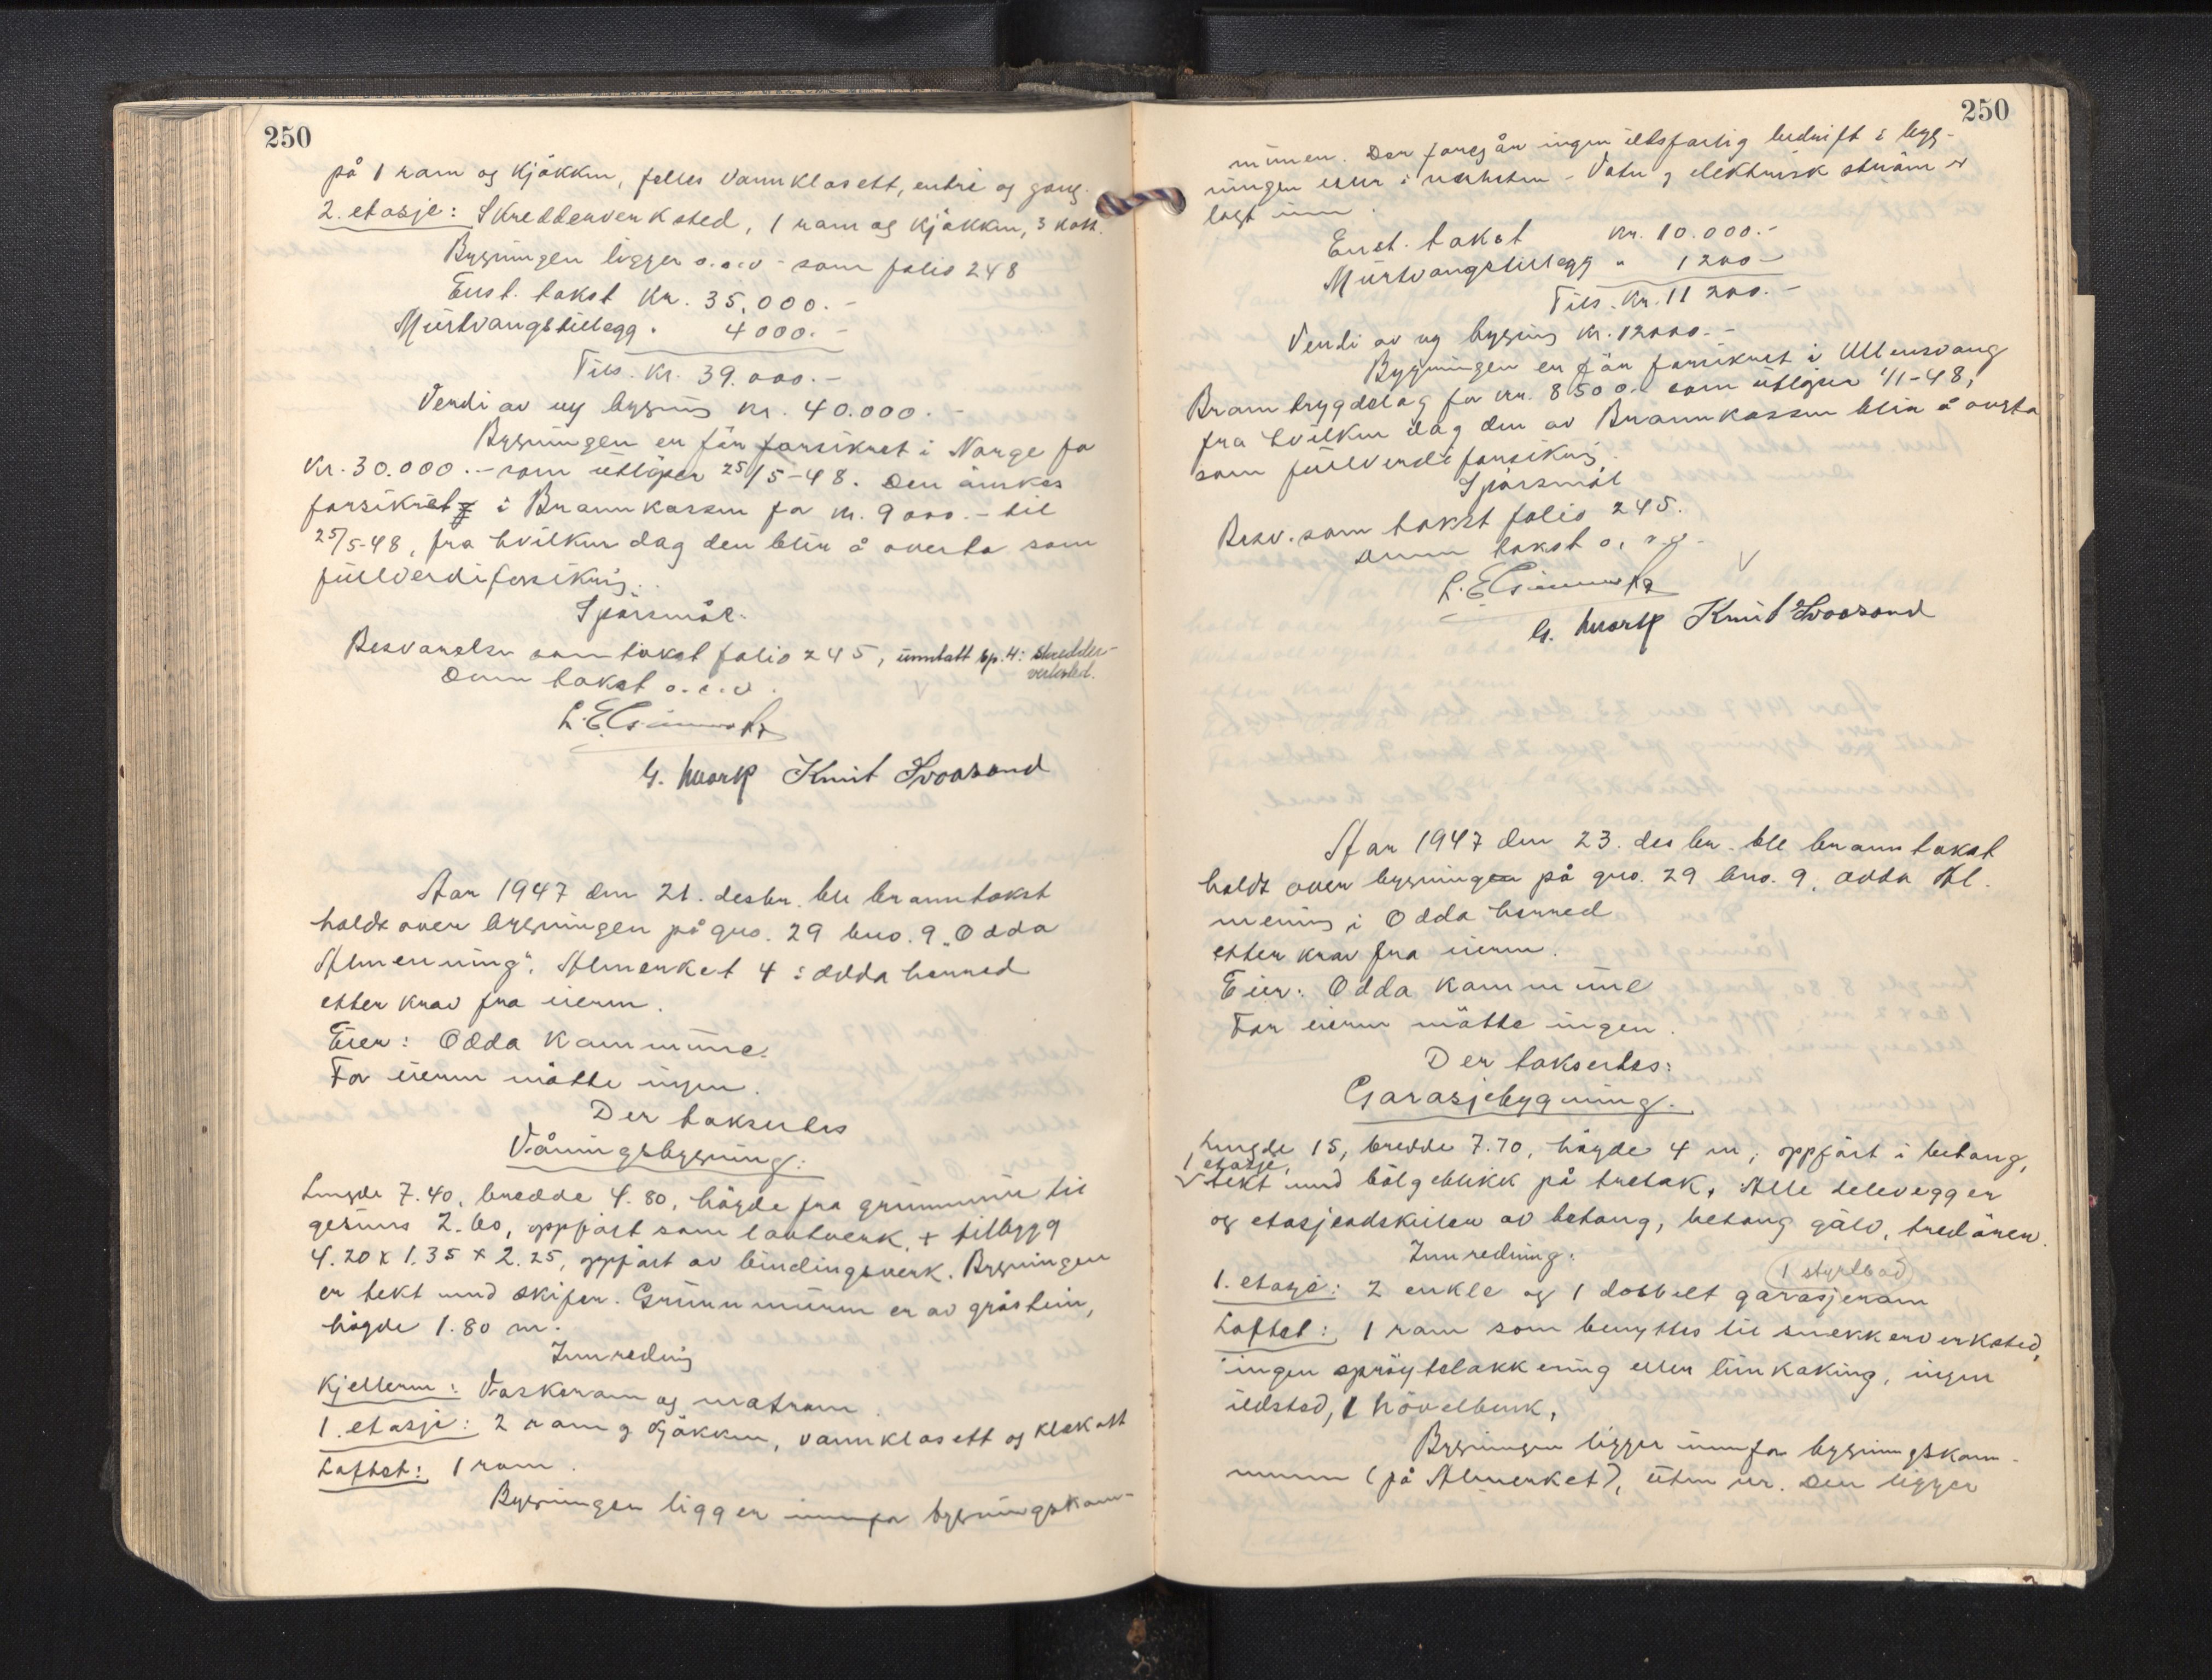 250
på 1 rom og kjøkken, felles vannklosett, entré og gang.
2. etasje: Skredderverksted, 1 rom og kjøkken, 3 kott.
Bygningen ligger o.s.v. som folio 248
Enst. takst kr. 35.000.-
Murtvangstillegg " 4000.-
Tils. kr. 39.000.-
Verdi av ny bygning kr. 40.000.-
Bygningen er før forsikret i Norge for
kr. 30.000.- som utløper 25/5-48. Den ønskes
forsikret i Brannkassen for kr. 9000.- til
25/5-48, fra hvilken dag den blir å overta som
fullverdiforsikring.
Spørsmål:
Besvarelse som takst folio 245, unntatt sp. 4: skredder-
verksted.
Denne takst o.s.v.
G. Mvark Knut Svoasand
Aar 1947 den 21. desbr. ble branntakst
holdt over bygningen på gno. 29 bno. 9 „Odda
Almenning", Almerket 4 i Odda herred
etter krav fra eieren.
Eier: Odda kommune.
For eieren møtte ingen.
Der taksertes
Våningsbygning:
Lengde 7.40, bredde 4.80, høyde fra grunnmur til
gesims 2.60, oppført som laftverk, + tilbygg
4.20 x 1.35 x 2.25, oppført av bindingsverk. Bygningen
er tekt med skifer. Grunnmuren er av gråstein,
høyde 1.80 m.
Innredning
Kjelleren: Vaskerom og matrom.
1. etasje: 2 rom og kjøkken, vannklosett og klekott
Loftet: 1 rom.
Bygningen ligger innenfor bygningskom-
250
munen. Der foregår ingen ildsfarlig bedrift i byg-
ningen eller i nærheten - Vatn og elektrisk strøm er
lagt inn.
Enst. takst kr. 10.000.-
Murtvangstillegg " 1200.-
Tils. kr. 11200.-
Verdi av ny bygning kr. 12000.-
Bygningen er før forsikret i Ullensvang
Branntrygdelag for kr. 8500.- som utløper 1/1-48,
fra hvilken dag den av Brannkassen blir å overta
som fullverdiforsikring.
Spørsmål
Besv. som takst folio 245.
Denne takst o.s.v.
G. Mvark Knut Svoasand
Aar 1947 den 23. desbr. ble branntakst
holdt over bygningen på gno. 29 bno. 9, Odda Al-
menning i Odda herred
etter krav fra eieren.
Eier: Odda kommune
For eieren møtte ingen.
Der taksertes:
Garasjebygning.
Lengde 15, bredde 7.70, høyde 4 m, oppført i betong,
1 etasje,
tekt med bølgeblikk på tretak. Alle delevegger
og etasjeadskiller av betong, betong gølv, tredører.
Innredning:
1 styrtbad
1. etasje: 2 enkle og 1 dobbelt garasjerom
Loftet: 1 rom som benyttes til snekkerverksted,
ingen sprøytelakkering eller limkoking, ingen
ildsted, 1 høvelbenk,
Bygningen ligger innenfor bygningskom-
munen (på Almerket), uten nr. Den ligger